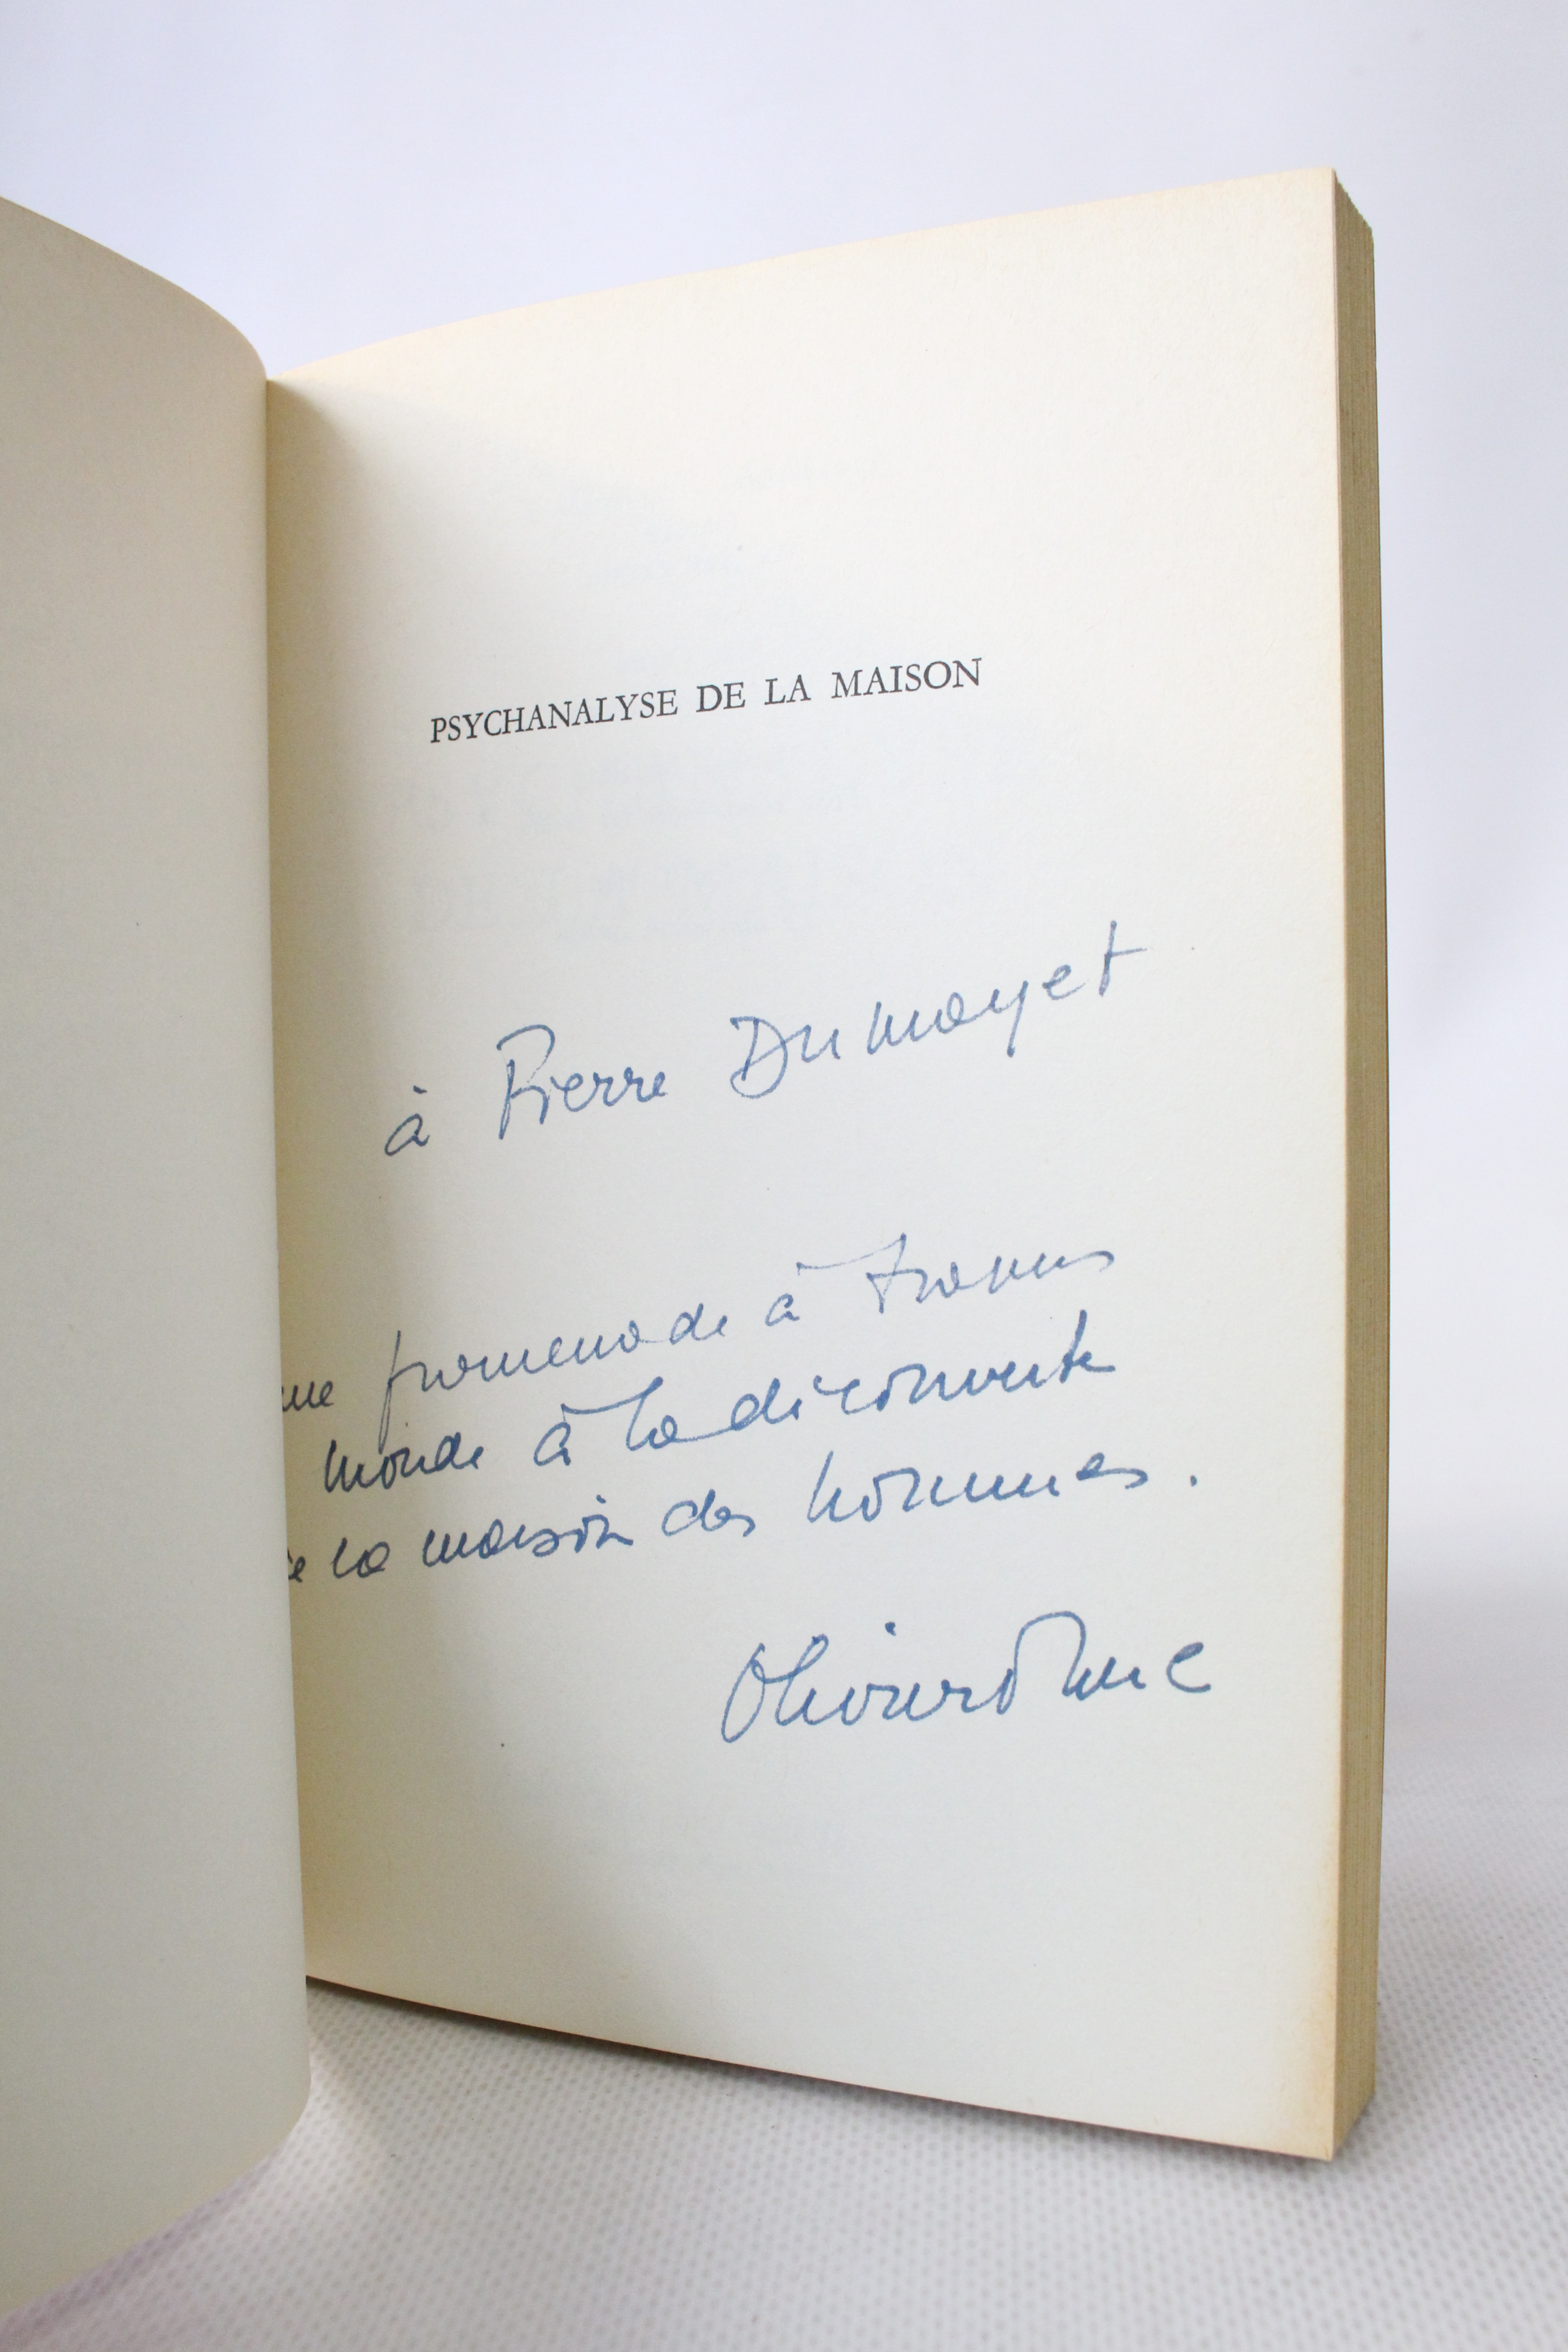 PSYCHANALYSE DE LA MAISON
à Pierre Dumayet
une promenade à travers
monde à la découverte
de la maison des hommes.
Olivier Marc